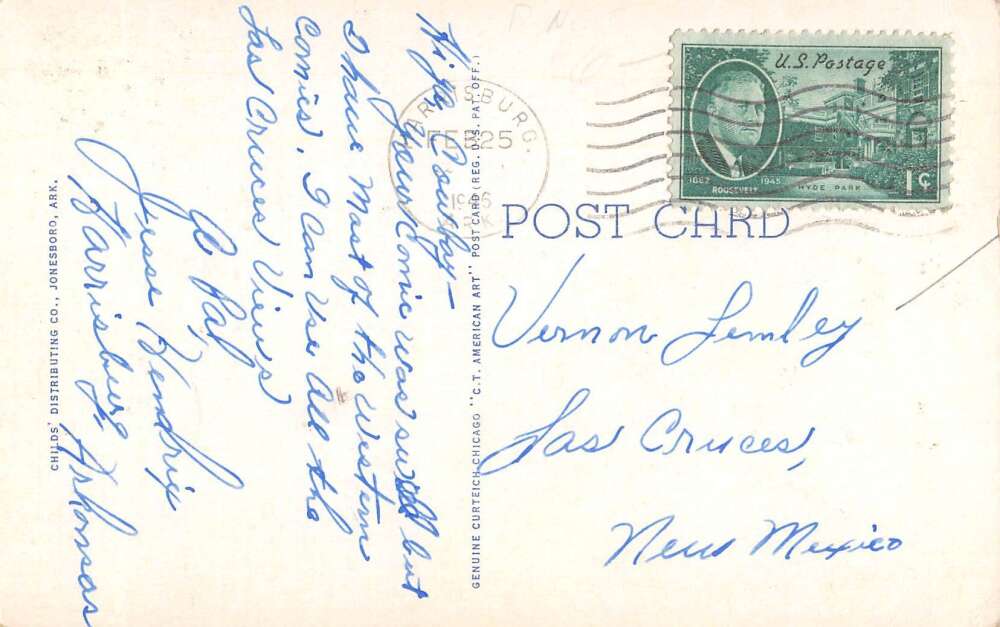 Hi ya Cowboy—
Your Comic was swell but
I have Most of the Western
Comics. I Can Use All the
Las Cruces Views
Ur Pal,
Jesse Hendrix
Harrisburg, Arkansas
CHILDS' DISTRIBUTING CO., JONESBORO, ARK.
GENUINE CURTEICH-CHICAGO "C.T. AMERICAN ART" POST CARD (REG. U.S. PAT. OFF.)
HARRISBURG.
FEB 25
1946
ARK
U.S. Postage
1882 1945
ROOSEVELT
HYDE PARK
1¢
POST CARD
Vernon Lemley
Las Cruces,
New Mexico